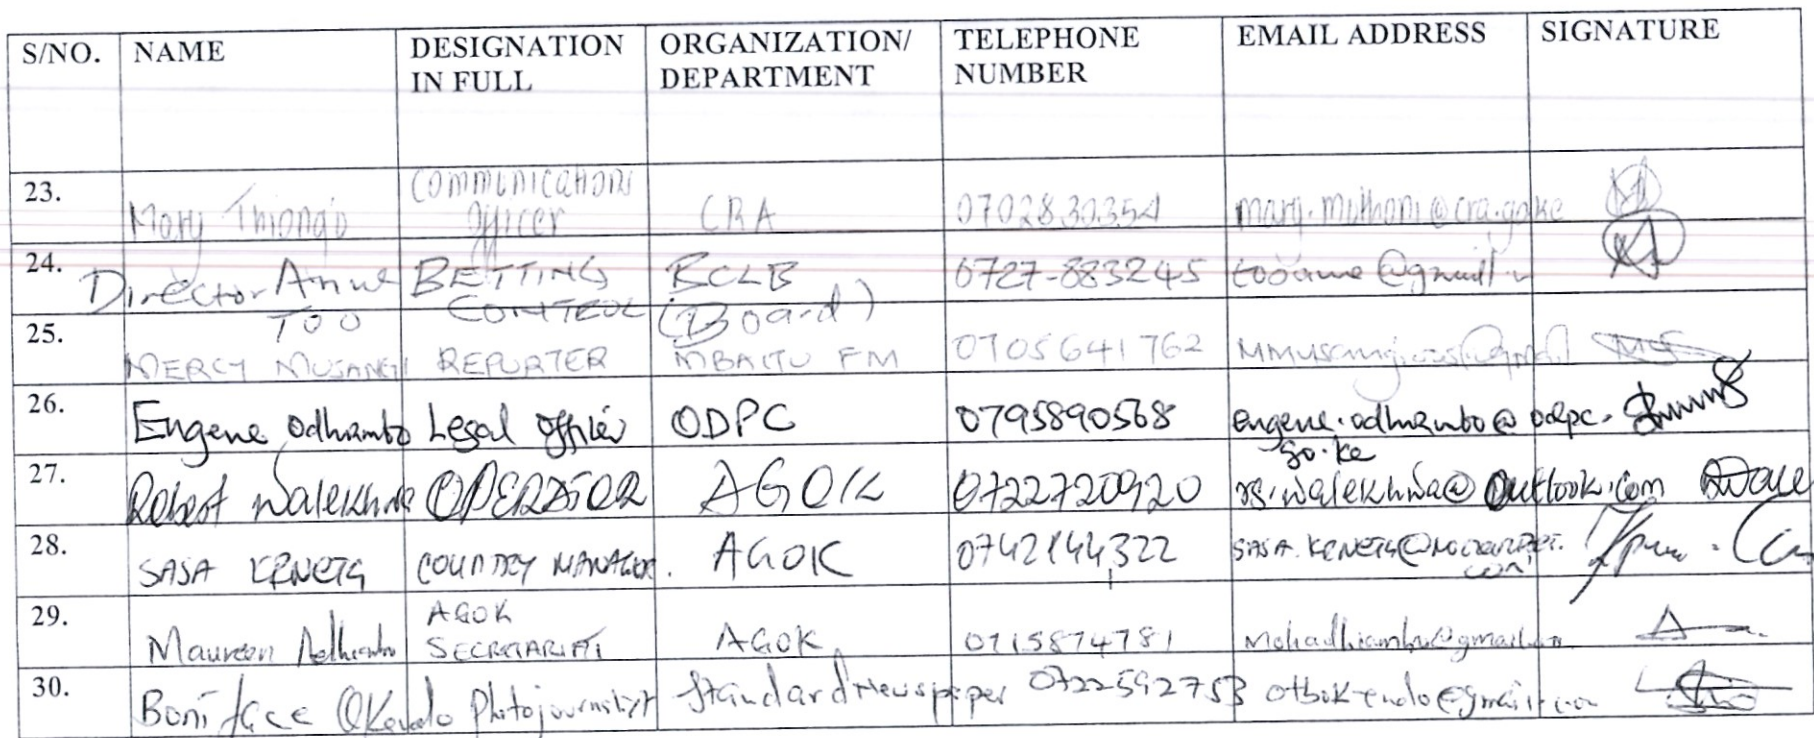 S/NO. NAME DESIGNATION IN FULL ORGANIZATION/ DEPARTMENT TELEPHONE NUMBER EMAIL ADDRESS SIGNATURE
23. Mary Thiong'o Communications Officer CRA 0702830354 mary.muthoni@cra.go.ke
24. Director Anne Too BETTING CONTROL BCLB (Board) 0727-883245
25. MERCY MUSANGI REPORTER MBAITU FM 0705641762
26. Eugene Odhiambo Legal Officer ODPC 0795890568 eugene.odhiambo@odpc.go.ke
27. Robert Walekhwa OPERATOR AGOK 0722720920 rs.walekhwa@outlook.com
28. SASA COUNTRY MANAGER. AGOK 0742144322
29. Maureen Adhiambo AGOK SECRETARIAT AGOK 0715874781
30. Boniface Okendo Photojournalist Standard Newspaper 0722592753